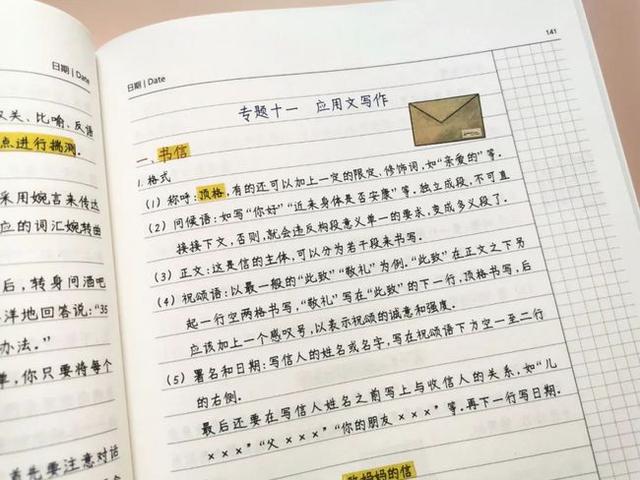 日期 | Date
汉关、比喻、反语
点进行揣测。
采用婉言来传达
应的词汇婉转曲
后，转身问酒吧
洋地回答说：“35
办法。”
单，你只要将每个
首先要注意对话
141
日期 | Date
专题十一 应用文写作
一、书信
1. 格式
（1）称呼：顶格，有的还可以加上一定的限定、修饰词，如“亲爱的”等。
（2）问候语：如写“你好”“近来身体是否安康”等。独立成段，不可直
接接下文，否则，就会违反构段意义单一的要求，变成多义段了。
（3）正文：这是信的主体，可以分为若干段来书写。
（4）祝颂语：以最一般的“此致”“敬礼”为例。“此致”在正文之下另
起一行空两格书写，“敬礼”写在“此致”的下一行，顶格书写，后
应该加上一个感叹号，以表示祝颂的诚意和强度。
（5）署名和日期：写信人的姓名或名字，写在祝颂语下方空一至二行
的右侧。
最后还要在写信人姓名之前写上与收信人的关系，如“儿
×××”“父×××”“你的朋友×××”等。再下一行写日期。
妈妈的信